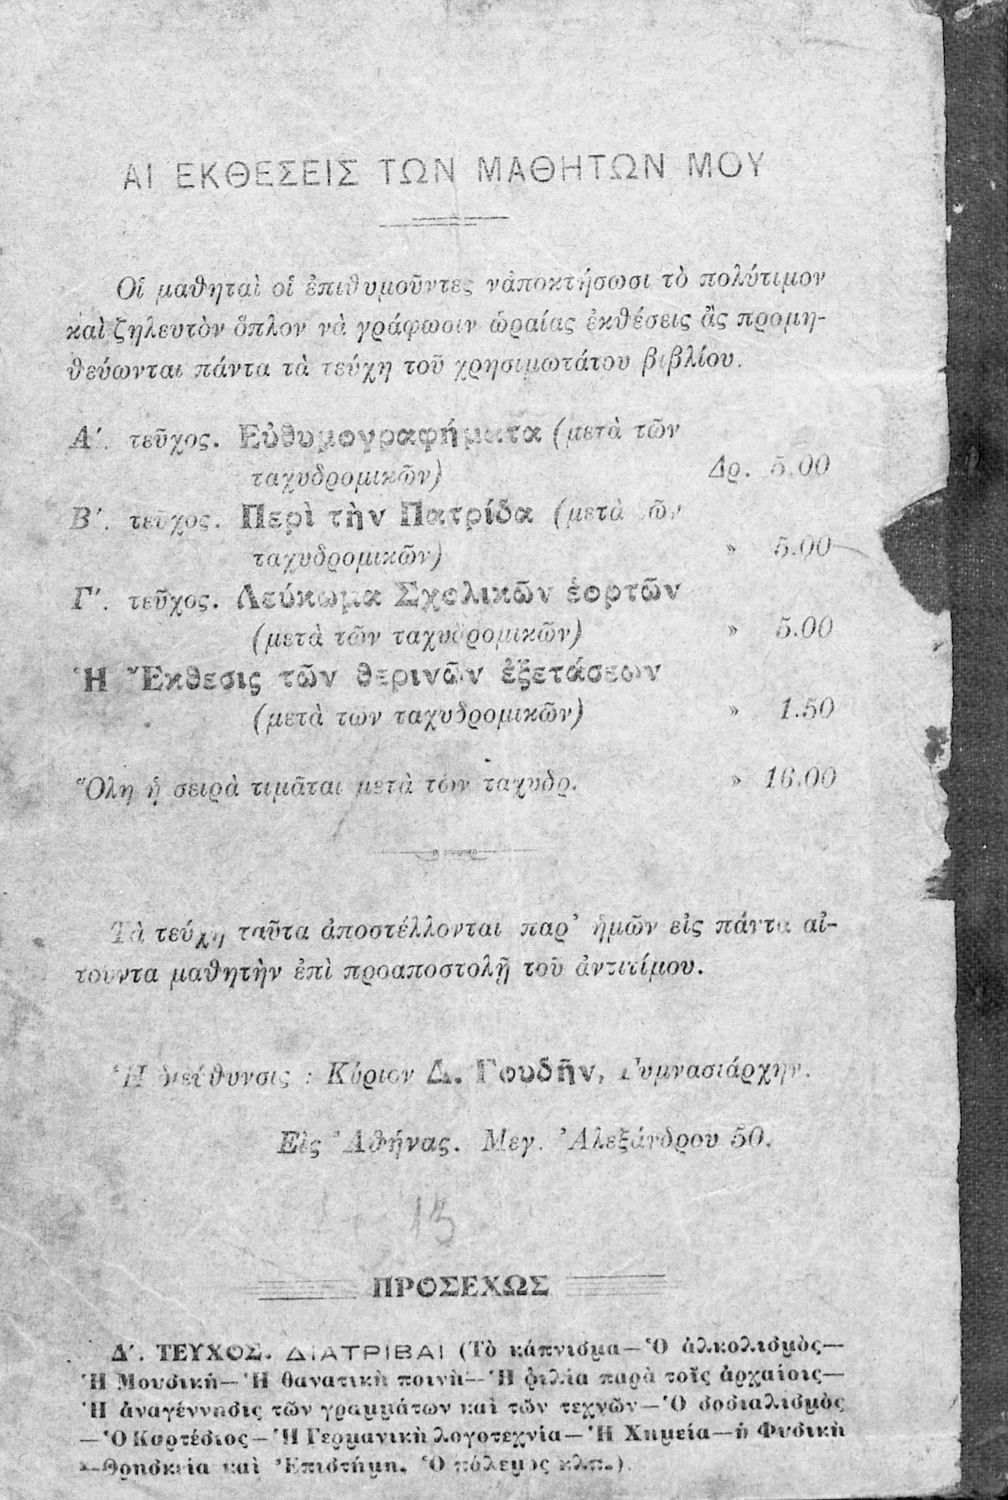 ΑΙ ΕΚΘΕΣΕΙΣ ΤΩΝ ΜΑΘΗΤΩΝ ΜΟΥ
Οἱ μαθηταὶ οἱ ἐπιθυμοῦντες νἀποκτήσωσι τὸ πολύτιμον
καὶ ζηλευτὸν ὅπλον νὰ γράφωσιν ὡραίας ἐκθέσεις ἂς προμη-
θεύωνται πάντα τὰ τεύχη τοῦ χρησιμωτάτου βιβλίου.
Α΄. τεῦχος. Εὐθυμογραφήματα (μετὰ τῶν
ταχυδρομικῶν) Δρ. 5.00
Β΄. τεῦχος. Περὶ τὴν Πατρίδα (μετὰ τῶν
ταχυδρομικῶν) » 5.00
Γ΄. τεῦχος. Λεύκωμα Σχολικῶν ἑορτῶν
(μετὰ τῶν ταχυδρομικῶν) » 5.00
Ἡ Ἔκθεσις τῶν θερινῶν ἐξετάσεων
(μετὰ τῶν ταχυδρομικῶν) » 1.50
Ὅλη ἡ σειρὰ τιμᾶται μετὰ τῶν ταχυδρ. » 16.00
Τὰ τεύχη ταῦτα ἀποστέλλονται παρ' ἡμῶν εἰς πάντα αἰ-
τοῦντα μαθητὴν ἐπὶ προαποστολῇ τοῦ ἀντιτίμου.
Ἡ διεύθυνσις : Κύριον Δ. Γουδῆν, Γυμνασιάρχην.
Εἰς Ἀθήνας. Μεγ. Ἀλεξάνδρου 50.
13
ΠΡΟΣΕΧΩΣ
Δ΄. ΤΕΥΧΟΣ. ΔΙΑΤΡΙΒΑΙ (Τὸ κάπνισμα—Ὁ ἀλκολισμὸς—
Ἡ Μουσικὴ—Ἡ θανατικὴ ποινὴ—Ἡ φιλία παρὰ τοῖς ἀρχαίοις—
Ἡ ἀναγέννησις τῶν γραμμάτων καὶ τῶν τεχνῶν—Ὁ σοσιαλισμὸς
—Ὁ Καρτέσιος—Ἡ Γερμανικὴ λογοτεχνία—Ἡ Χημεία—ἡ Φυσικὴ
—Θρησκεία καὶ Ἐπιστήμη. Ὁ πόλεμος κλπ.)